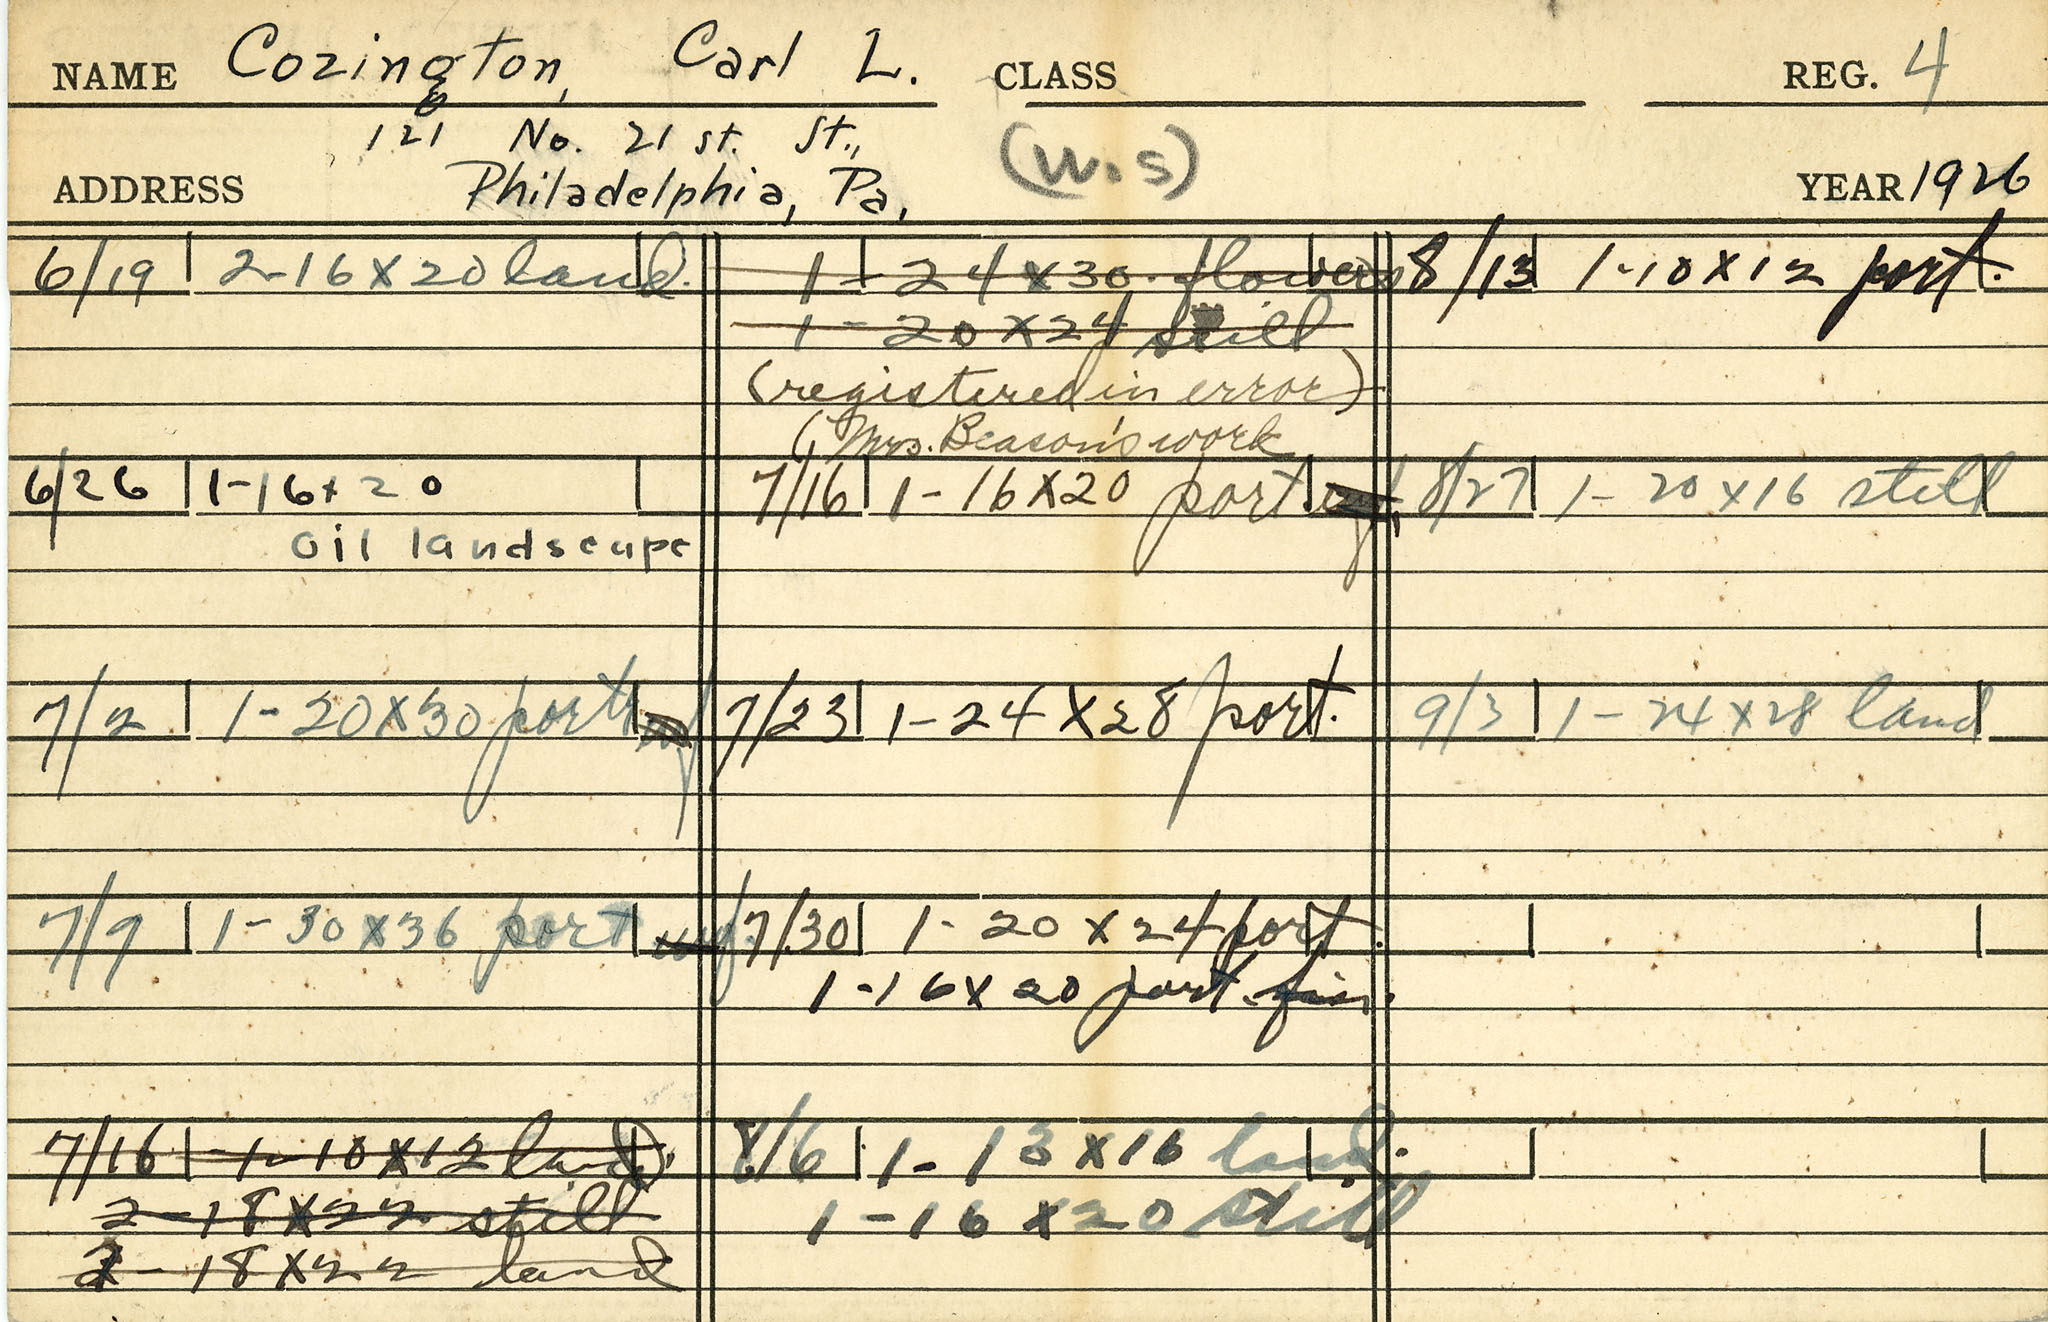 NAME Cozington, Carl L. CLASS REG. 4
121 No. 21 st. St.,
(W.S)
ADDRESS Philadelphia, Pa. YEAR 1926
6/19 2-16X20 land.
6/26 1-16x20
oil landscape
7/2 1-20X30 port
7/9 1-30X36 port
7/16 1-10X12 land.
2-18X22 still
2-18X22 land
1-24X30. flowers
1-20X24 still
(registered in error)
(Mrs. Beason's work
7/16 1-16X20 port
7/23 1-24X28 port.
7/30 1-20X24 port.
1-16X20 port.
8/6 1-13X16 land.
1-16X20 still
8/13 1-10X12 port.
8/27 1-20X16 still
9/3 1-24X28 land